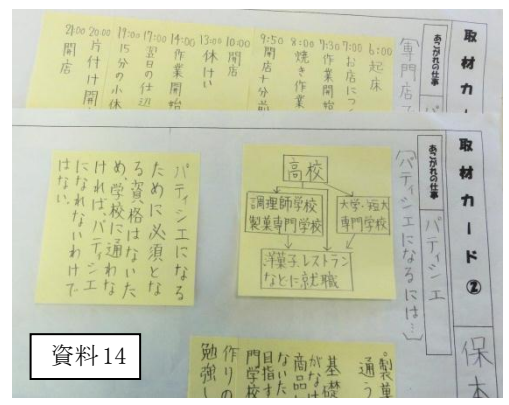 取材カー
あこがれの仕事
パ
〔専門店
6:00 起床
7:00 お店につ
7:30 作業開始
8:00 焼き作業
9:50 開店十分前
10:00 開店
13:00 休けい
14:00 作業開始
17:00 翌日の仕込
19:00 15分の小休
20:00 片付け開
21:00 閉店
取材カード②
あこがれの仕事
パティシエ
保本
〔パティシエになるには…〕
高校
大学・短大
専門学校
調理師学校
製菓専門学校
洋菓子、レストラン
などに就職
パティシエになる
ために必須とな
る資格はないた
め、学校に通わな
ければ、パティシエ
になれないわけで
はない。
・製菓
通う
基礎
がなけ
商品
ないた
目指す
門学校
作りの
勉強し
資料14